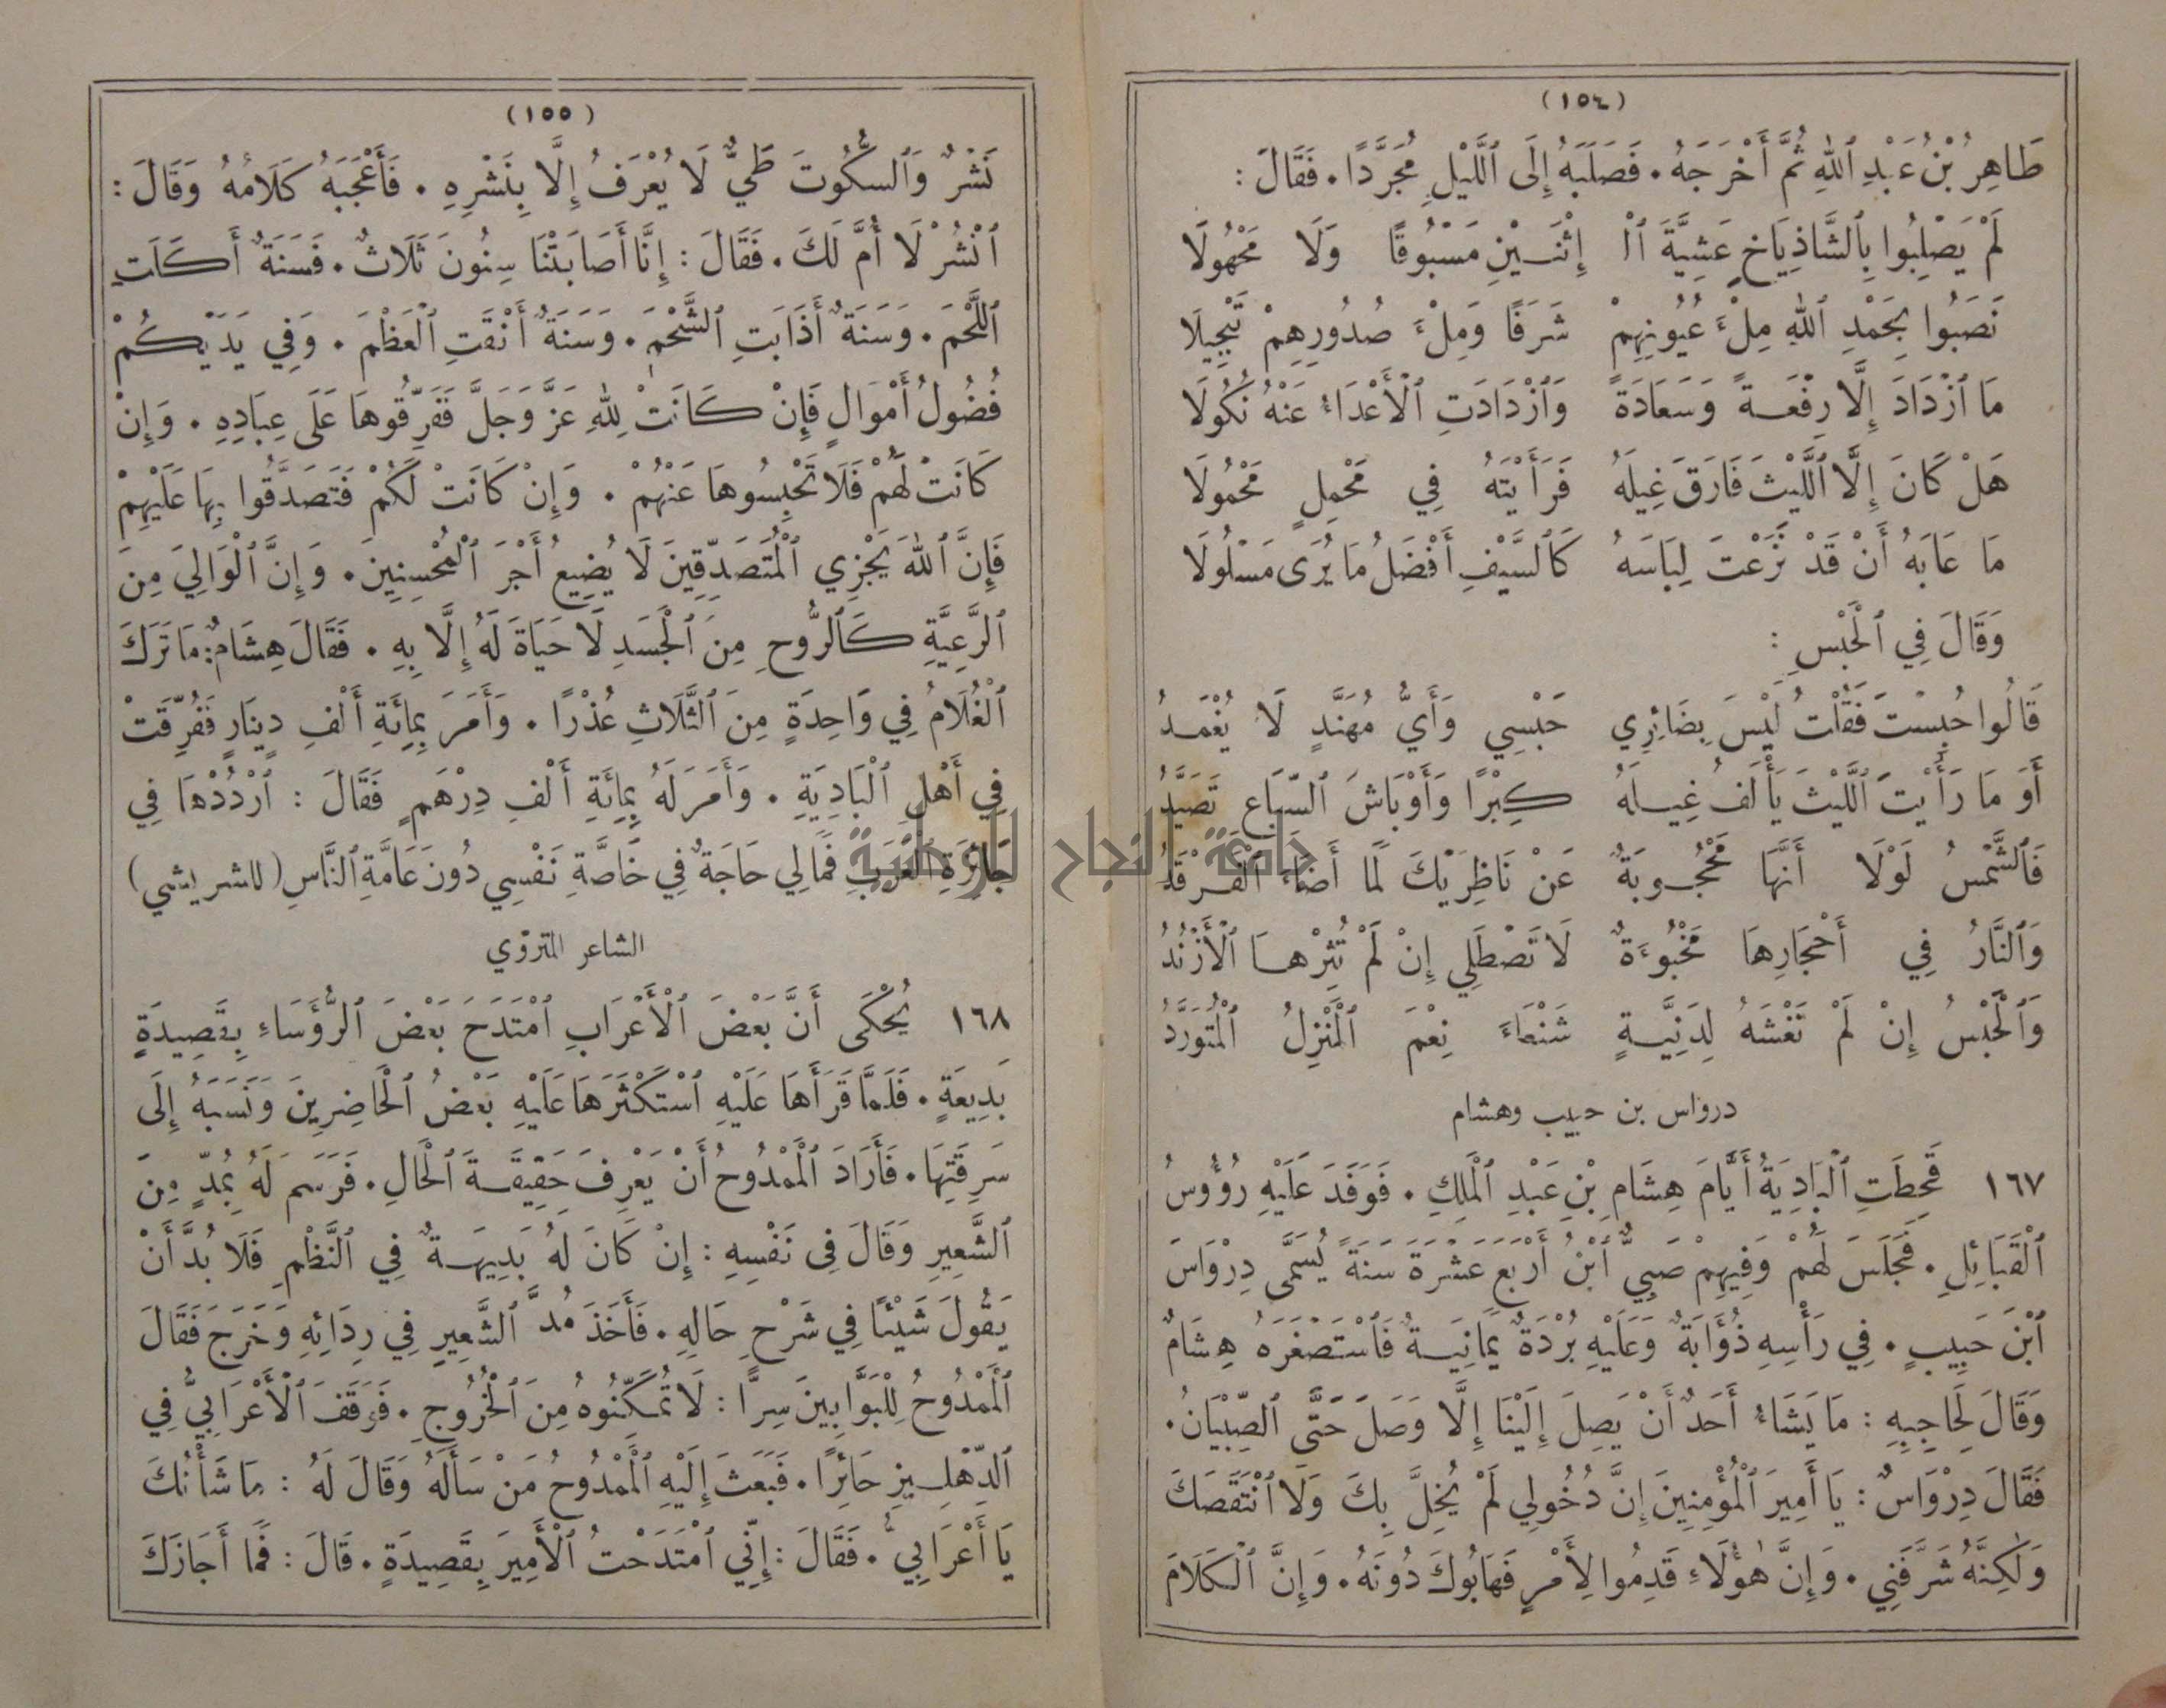 (١٥٤)
طَاهِرُ بْنُ عَبْدِ ٱللهِ ثُمَّ أَخْرَجَهُ. فَصَلَبَهُ إِلَى ٱللَّيْلِ مُجَرَّدًا. فَقَالَ:
لَمْ يَصْلِبُوا بِٱلشَّاذِيَاخِ عَشِيَّةَ ٱلْ إِثْنَيْنِ مَسْبُوقًا وَلَا مَجْهُولَا
نَصَبُوا بِحَمْدِ ٱللهِ مِلْءَ عُيُونِهِمْ شَرَفًا وَمِلْءَ صُدُورِهِمْ تَبْجِيلَا
مَا ٱزْدَادَ إِلَّا رِفْعَةً وَسَعَادَةً وَٱزْدَادَتِ ٱلْأَعْدَاءُ عَنْهُ نُكُولَا
هَلْ كَانَ إِلَّا ٱللَّيْثَ فَارَقَ غِيلَهُ فَرَأَيْتَهُ فِي مَحْمِلٍ مَحْمُولَا
مَا عَابَهُ أَنْ قَدْ نَزَعْتَ لِبَاسَهُ كَٱلسَّيْفِ أَفْضَلُ مَا يُرَى مَسْلُولَا
وَقَالَ فِي ٱلْحَبْسِ:
قَالُوا حُبِسْتَ فَقُلْتُ لَيْسَ بِضَائِرِي حَبْسِي وَأَيُّ مُهَنَّدٍ لَا يُغْمَدُ
أَوَ مَا رَأَيْتَ ٱللَّيْثَ يَأْلَفُ غِيلَهُ كِبْرًا وَأَوْبَاشَ ٱلسِّبَاعِ تَصَيَّدُ
فَٱلشَّمْسُ لَوْلَا أَنَّهَا مَحْجُوبَةٌ عَنْ نَاظِرَيْكَ لَمَا أَضَاءَ ٱلْفَرْقَدُ
وَٱلنَّارُ فِي أَحْجَارِهَا مَخْبُوءَةٌ لَا تَصْطَلِي إِنْ لَمْ تُثِرْهَا ٱلْأَزْنُدُ
وَٱلْحَبْسُ إِنْ لَمْ تَغْشَهُ لِدَنِيَّةٍ شَنْعَاءَ نِعْمَ ٱلْمَنْزِلُ ٱلْمُتَوَرَّدُ
درواس بن حبيب وهشام
١٦٧ قَحِطَتِ ٱلْبَادِيَةُ أَيَّامَ هِشَامِ بْنِ عَبْدِ ٱلْمَلِكِ. فَوَفَدَ عَلَيْهِ رُؤُوسُ
ٱلْقَبَائِلِ. فَجَلَسَ لَهُمْ وَفِيهِمْ صَبِيٌّ ٱبْنُ أَرْبَعَ عَشْرَةَ سَنَةً يُسَمَّى دِرْوَاسَ
ٱبْنَ حَبِيبٍ. فِي رَأْسِهِ ذُؤَابَةٌ وَعَلَيْهِ بُرْدَةٌ يَمَانِيَةٌ فَٱسْتَصْغَرَهُ هِشَامٌ
وَقَالَ لِحَاجِبِهِ: مَا يَشَاءُ أَحَدٌ أَنْ يَصِلَ إِلَيْنَا إِلَّا وَصَلَ حَتَّى ٱلصِّبْيَانُ.
فَقَالَ دِرْوَاسٌ: يَا أَمِيرَ ٱلْمُؤْمِنِينَ إِنَّ دُخُولِي لَمْ يُخِلَّ بِكَ وَلَا ٱنْتَقَصَكَ
وَلٰكِنَّهُ شَرَّفَنِي. وَإِنَّ هٰؤُلَاءِ قَدِمُوا لِأَمْرٍ فَهَابُوكَ دُونَهُ. وَإِنَّ ٱلْكَلَامَ
(١٥٥)
نَشْرٌ وَٱلسُّكُوتَ طَيٌّ لَا يُعْرَفُ إِلَّا بِنَشْرِهِ. فَأَعْجَبَهُ كَلَامُهُ وَقَالَ:
ٱنْشُرْ لَا أُمَّ لَكَ. فَقَالَ: إِنَّا أَصَابَتْنَا سِنُونَ ثَلَاثٌ. فَسَنَةٌ أَكَلَتِ
ٱللَّحْمَ. وَسَنَةٌ أَذَابَتِ ٱلشَّحْمَ. وَسَنَةٌ أَنْقَتِ ٱلْعَظْمَ. وَفِي يَدَيْكُمْ
فُضُولُ أَمْوَالٍ فَإِنْ كَانَتْ لِلهِ عَزَّ وَجَلَّ فَفَرِّقُوهَا عَلَى عِبَادِهِ. وَإِنْ
كَانَتْ لَهُمْ فَلَا تَحْبِسُوهَا عَنْهُمْ. وَإِنْ كَانَتْ لَكُمْ فَتَصَدَّقُوا بِهَا عَلَيْهِمْ
فَإِنَّ ٱللهَ يَجْزِي ٱلْمُتَصَدِّقِينَ لَا يُضِيعُ أَجْرَ ٱلْمُحْسِنِينَ. وَإِنَّ ٱلْوَالِيَ مِنَ
ٱلرَّعِيَّةِ كَٱلرُّوحِ مِنَ ٱلْجَسَدِ لَا حَيَاةَ لَهُ إِلَّا بِهِ. فَقَالَ هِشَامٌ: مَا تَرَكَ
ٱلْغُلَامُ فِي وَاحِدَةٍ مِنَ ٱلثَّلَاثِ عُذْرًا. وَأَمَرَ بِمِائَةِ أَلْفِ دِينَارٍ فَفُرِّقَتْ
فِي أَهْلِ ٱلْبَادِيَةِ. وَأَمَرَ لَهُ بِمِائَةِ أَلْفِ دِرْهَمٍ فَقَالَ: ٱرْدُدْهَا فِي
جَائِزَةِ ٱلْعَرَبِ فَمَا لِي حَاجَةٌ فِي خَاصَّةِ نَفْسِي دُونَ عَامَّةِ ٱلنَّاسِ (للشريشي)
الشاعر المتروّي
١٦٨ يُحْكَى أَنَّ بَعْضَ ٱلْأَعْرَابِ ٱمْتَدَحَ بَعْضَ ٱلرُّؤَسَاءِ بِقَصِيدَةٍ
بَدِيعَةٍ. فَلَمَّا قَرَأَهَا عَلَيْهِ ٱسْتَكْثَرَهَا عَلَيْهِ بَعْضُ ٱلْحَاضِرِينَ وَنَسَبَهُ إِلَى
سَرِقَتِهَا. فَأَرَادَ ٱلْمَمْدُوحُ أَنْ يَعْرِفَ حَقِيقَةَ ٱلْحَالِ. فَرَسَمَ لَهُ بِمُدٍّ مِنَ
ٱلشَّعِيرِ وَقَالَ فِي نَفْسِهِ: إِنْ كَانَ لَهُ بَدِيهَةٌ فِي ٱلنَّظْمِ فَلَا بُدَّ أَنْ
يَقُولَ شَيْئًا فِي شَرْحِ حَالِهِ. فَأَخَذَ مُدَّ ٱلشَّعِيرِ فِي رِدَائِهِ وَخَرَجَ فَقَالَ
ٱلْمَمْدُوحُ لِلْبَوَّابِينَ سِرًّا: لَا تُمَكِّنُوهُ مِنَ ٱلْخُرُوجِ. فَوَقَفَ ٱلْأَعْرَابِيُّ فِي
ٱلدِّهْلِيزِ حَائِرًا. فَبَعَثَ إِلَيْهِ ٱلْمَمْدُوحُ مَنْ سَأَلَهُ وَقَالَ لَهُ: مَا شَأْنُكَ
يَا أَعْرَابِيُّ. فَقَالَ: إِنِّي ٱمْتَدَحْتُ ٱلْأَمِيرَ بِقَصِيدَةٍ. قَالَ: فَمَا أَجَازَكَ
جامعة النجاح الوطنية